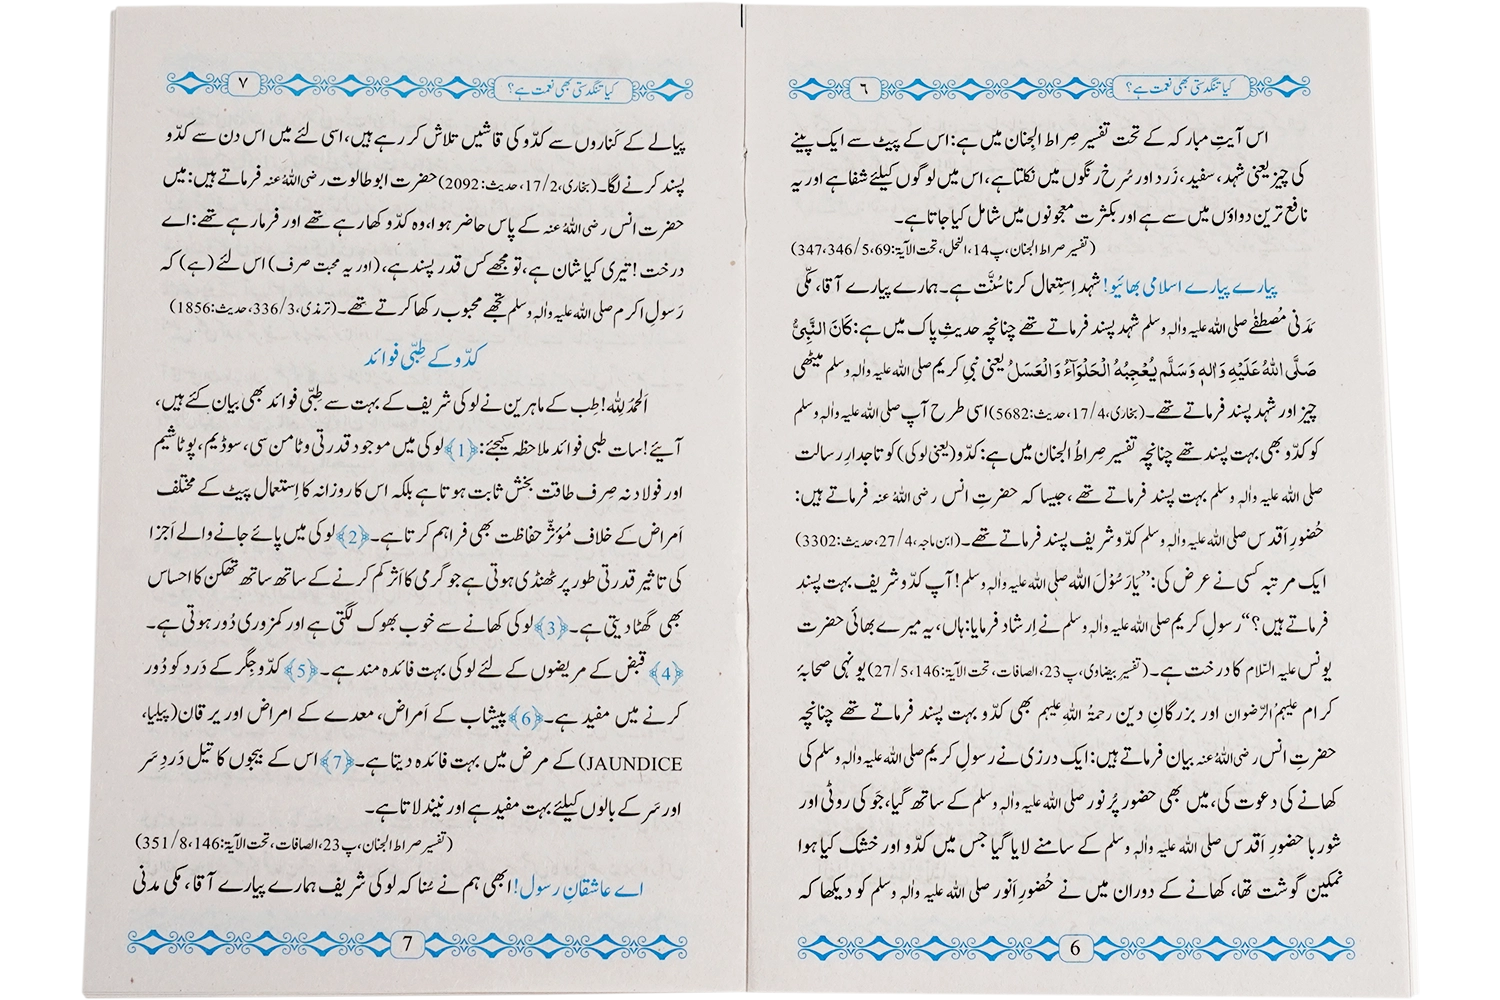 کیا تنگدستی بھی نعمت ہے؟
٦
اس آیتِ مبارکہ کے تحت تفسیر صِراط الجنان میں ہے: اس کے پیٹ سے ایک پینے
کی چیز یعنی شہد، سفید، زَرد اور سُرخ رنگوں میں نکلتا ہے، اس میں لوگوں کیلئے شفا ہے اور یہ
نافع ترین دواؤں میں سے ہے اور بکثرت معجونوں میں شامل کیا جاتا ہے۔
(تفسیر صراط الجنان، پ14، النحل، تحت الآیۃ: 69، 5/346، 347)
پیارے پیارے اسلامی بھائیو! شہد اِستِعمال کرنا سُنَّت ہے۔ ہمارے پیارے آقا، مکّی
مَدَنی مُصطفٰے صلی اللہ علیہ واٰلہٖ وسلم شہد پسند فرماتے تھے چنانچہ حدیثِ پاک میں ہے: كَانَ النَّبِيُّ
صَلَّى اللهُ عَلَيْهِ وَاٰلِهٖ وَسَلَّم يُعْجِبُهُ الْحَلْوَآءُ وَالْعَسَلُ یعنی نبیِ کریم صلی اللہ علیہ واٰلہٖ وسلم میٹھی
چیز اور شہد پسند فرماتے تھے۔ (بخاری، 4/17، حدیث: 5682) اسی طرح آپ صلی اللہ علیہ واٰلہٖ وسلم
کو کدّو بھی بہت پسند تھے چنانچہ تفسیر صِراطُ الجنان میں ہے: کدّو (یعنی لوکی) کو تاجدارِ رسالت
صلی اللہ علیہ واٰلہٖ وسلم بہت پسند فرماتے تھے، جیسا کہ حضرتِ انس رضی اللہُ عنہ فرماتے ہیں:
حُضورِ اَقدس صلی اللہ علیہ واٰلہٖ وسلم کدّو شریف پسند فرماتے تھے۔ (ابن ماجہ، 4/27، حدیث: 3302)
ایک مرتبہ کسی نے عرض کی: ”یَارَسُوْلَ اللہ صلی اللہ علیہ واٰلہٖ وسلم! آپ کدّو شریف بہت پسند
فرماتے ہیں؟“ رسولِ کریم صلی اللہ علیہ واٰلہٖ وسلم نے اِرشاد فرمایا: ہاں، یہ میرے بھائی حضرت
یونس علیہ السّلام کا درخت ہے۔ (تفسیر بیضاوی، پ23، الصافات، تحت الآیۃ: 146، 5/27) یونہی صحابۂ
کرام علیہمُ الرّضوان اور بزرگانِ دین رحمۃُ اللہِ علیہم بھی کدّو بہت پسند فرماتے تھے چنانچہ
حضرتِ انس رضی اللہُ عنہ بیان فرماتے ہیں: ایک درزی نے رسولِ کریم صلی اللہ علیہ واٰلہٖ وسلم کی
کھانے کی دعوت کی، میں بھی حضورِ پُرنور صلی اللہ علیہ واٰلہٖ وسلم کے ساتھ گیا، جَو کی روٹی اور
شوربا حضورِ اَقدس صلی اللہ علیہ واٰلہٖ وسلم کے سامنے لایا گیا جس میں کدّو اور خشک کیا ہوا
نمکین گوشت تھا، کھانے کے دوران میں نے حُضورِ اَنور صلی اللہ علیہ واٰلہٖ وسلم کو دیکھا کہ
6
کیا تنگدستی بھی نعمت ہے؟
٧
پیالے کے کَناروں سے کدّو کی قاشیں تلاش کر رہے ہیں، اسی لئے میں اس دن سے کدّو
پسند کرنے لگا۔ (بخاری، 2/17، حدیث: 2092) حضرت ابو طالوت رضی اللہُ عنہ فرماتے ہیں: میں
حضرت انس رضی اللہُ عنہ کے پاس حاضر ہوا، وہ کدّو کھا رہے تھے اور فرما رہے تھے: اے
درخت! تیری کیا شان ہے، تو مجھے کس قدر پسند ہے، (اور یہ محبت صرف) اس لئے (ہے) کہ
رَسولِ اکرم صلی اللہ علیہ واٰلہٖ وسلم تجھے محبوب رکھا کرتے تھے۔ (ترمذی، 3/336، حدیث: 1856)
کدّو کے طِبّی فوائد
اَلحمدُ لِلّٰہ! طِب کے ماہرین نے لوکی شریف کے بہت سے طِبّی فوائد بھی بیان کئے ہیں،
آیئے! سات طِبی فوائد ملاحظہ کیجئے: ﴿1﴾ لوکی میں موجود قدرتی وٹامن سی، سوڈیم، پوٹاشیم
اور فولاد نہ صِرف طاقت بخش ثابت ہوتا ہے بلکہ اس کا روزانہ کا اِستعمال پیٹ کے مختلف
اَمراض کے خلاف مُؤثّر حفاظت بھی فراہم کرتا ہے۔ ﴿2﴾ لوکی میں پائے جانے والے اَجزا
کی تاثیر قدرتی طور پر ٹھنڈی ہوتی ہے جو گرمی کا اَثر کم کرنے کے ساتھ ساتھ تھکن کا احساس
بھی گھٹا دیتی ہے۔ ﴿3﴾ لوکی کھانے سے خوب بھوک لگتی ہے اور کمزوری دُور ہوتی ہے۔
﴿4﴾ قبض کے مریضوں کے لئے لوکی بہت فائدہ مند ہے۔ ﴿5﴾ کدّو جگر کے دَرد کو دُور
کرنے میں مفید ہے۔ ﴿6﴾ پیشاب کے اَمراض، معدے کے امراض اور یرقان (پیلیا،
JAUNDICE) کے مرض میں بہت فائدہ دیتا ہے۔ ﴿7﴾ اس کے بیجوں کا تیل دَردِ سَر
اور سَر کے بالوں کیلئے بہت مفید ہے اور نیند لاتا ہے۔
(تفسیر صراط الجنان، پ23، الصافات، تحت الآیۃ: 146، 8/351)
اے عاشقانِ رسول! ابھی ہم نے سُنا کہ لوکی شریف ہمارے پیارے آقا، مکی مدنی
7